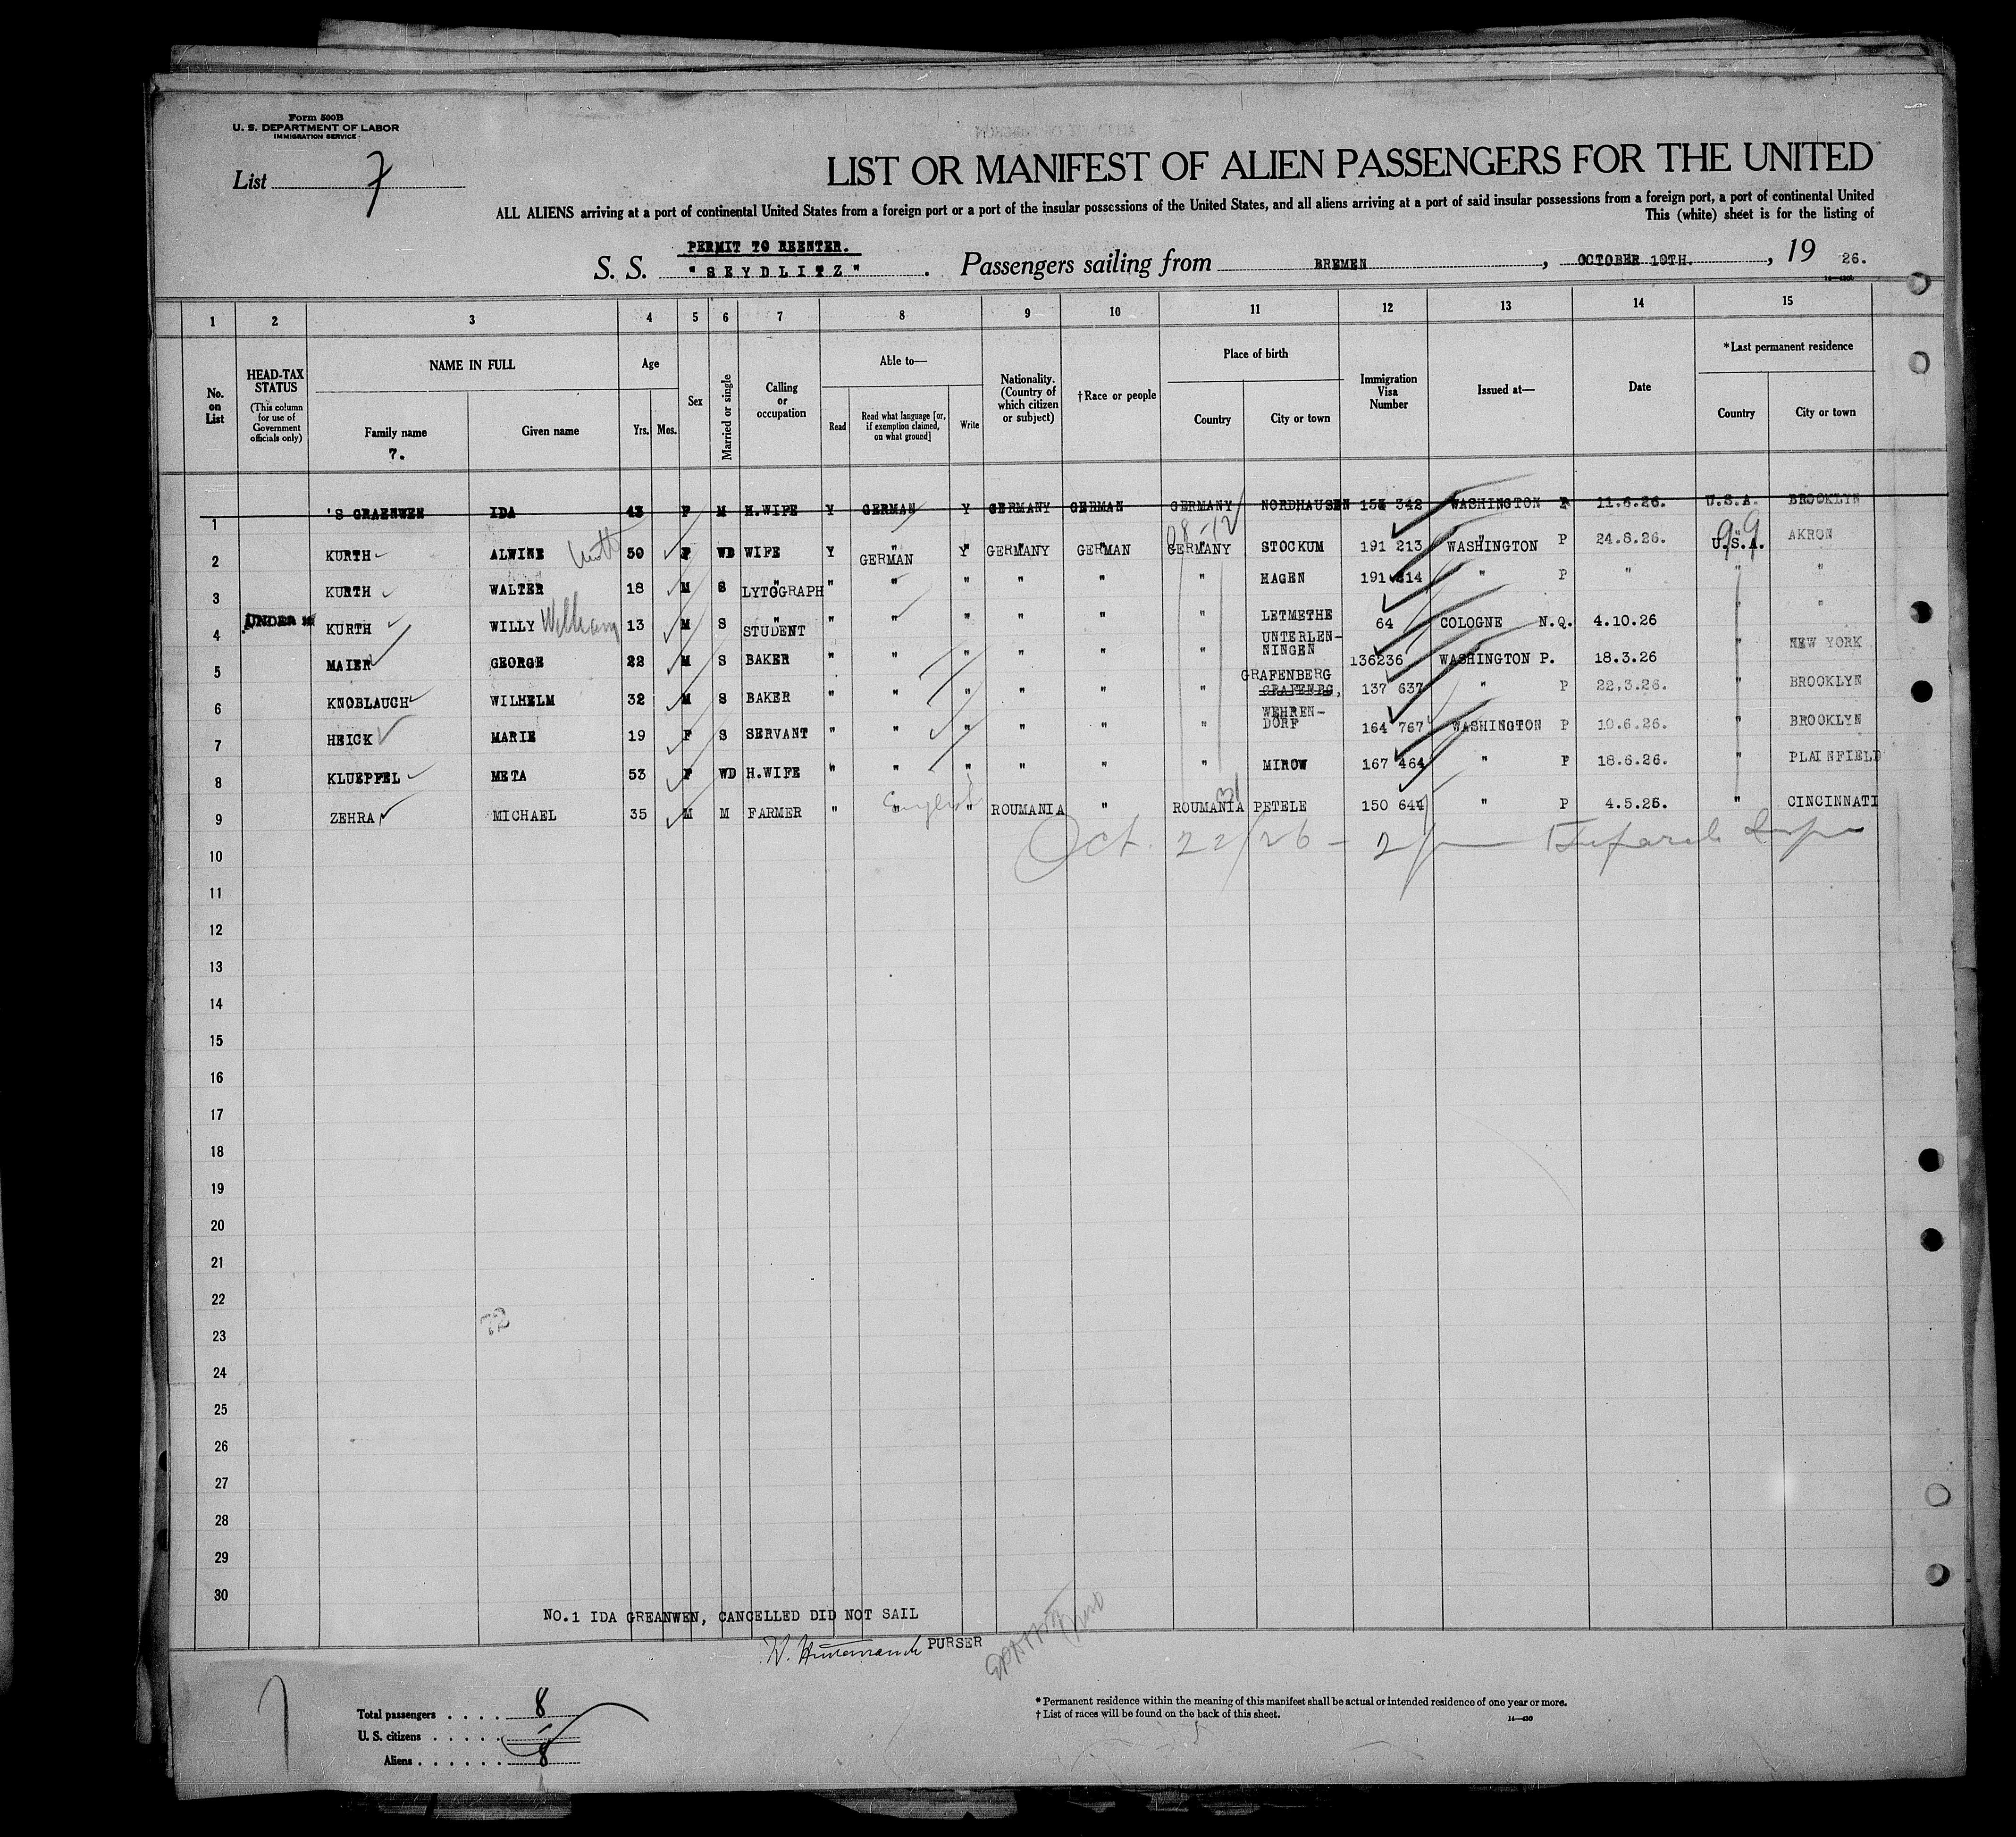 Form 500B
U. S. DEPARTMENT OF LABOR
IMMIGRATION SERVICE
List 7
LIST OR MANIFEST OF ALIEN PASSENGERS FOR THE UNITED
ALL ALIENS arriving at a port of continental United States from a foreign port or a port of the insular possessions of the United States, and all aliens arriving at a port of said insular possessions from a foreign port, a port of continental United
This (white) sheet is for the listing of
PERMIT TO REENTER.
S. S. "SEYDLITZ" . Passengers sailing from BREMEN, OCTOBER 10TH., 19 26.
1 2 3 4 5 6 7 8 9 10 11 12 13 14 15
No. on List
HEAD-TAX STATUS
(This column for use of Government officials only)
NAME IN FULL
Family name
7.
Given name
Age
Yrs. Mos.
Sex
Married or single
Calling or occupation
Able to—
Read
Read what language [or, if exemption claimed, on what ground]
Write
Nationality. (Country of which citizen or subject)
†Race or people
Place of birth
Country
City or town
Immigration Visa Number
Issued at—
Date
*Last permanent residence
Country
City or town
1 'S GRAENWEN IDA 43 F M H.WIFE Y GERMAN Y GERMANY GERMAN GERMANY NORDHAUSEN 154 342 WASHINGTON P 11.6.26. U.S.A. BROOKLYN
08-12
99
2 KURTH ALWINE 50 F WD WIFE Y " GERMAN Y " GERMANY " GERMAN " GERMANY STOCKUM 191 213 " WASHINGTON P 24.8.26. " U.S.A. AKRON
3 KURTH WALTER 18 M S " LYTOGRAPH " " " " " " HAGEN 191 214 " P " " "
UNDER 16
4 KURTH WILLY William 13 M S " STUDENT " " " " " " LETMETHE 64 COLOGNE N.Q. 4.10.26 " "
5 MAIER GEORGE 22 M S BAKER " " " " " " UNTERLEN-NINGEN 136236 WASHINGTON P. 18.3.26 " NEW YORK
6 KNOBLAUCH WILHELM 32 M S BAKER " " " " " " GRAFENBERG GRAFENBG, 137 637 " P 22.3.26. " BROOKLYN
7 HEICK MARIE 19 F S SERVANT " " " " " " WEHREN-DORF 164 767 WASHINGTON P 10.6.26. " BROOKLYN
8 KLUEPFEL META 53 F WD H.WIFE " " " " " " MIROW 167 464 " P 18.6.26. " PLAINFIELD
English
9 ZEHRA MICHAEL 35 M M FARMER " " " ROUMANIA " ROUMANIA PETELE 150 644 " P 4.5.26. " CINCINNATI
Oct. 22/26 -
10
11
12
13
14
15
16
17
18
19
20
21
22
23
24
25
26
27
28
29
30
NO.1 IDA GREANWEN, CANCELLED DID NOT SAIL
PURSER
Total passengers . . . . . 8
U. S. citizens . . . . . . –
Aliens . . . . . . 8
* Permanent residence within the meaning of this manifest shall be actual or intended residence of one year or more.
† List of races will be found on the back of this sheet.
14—430